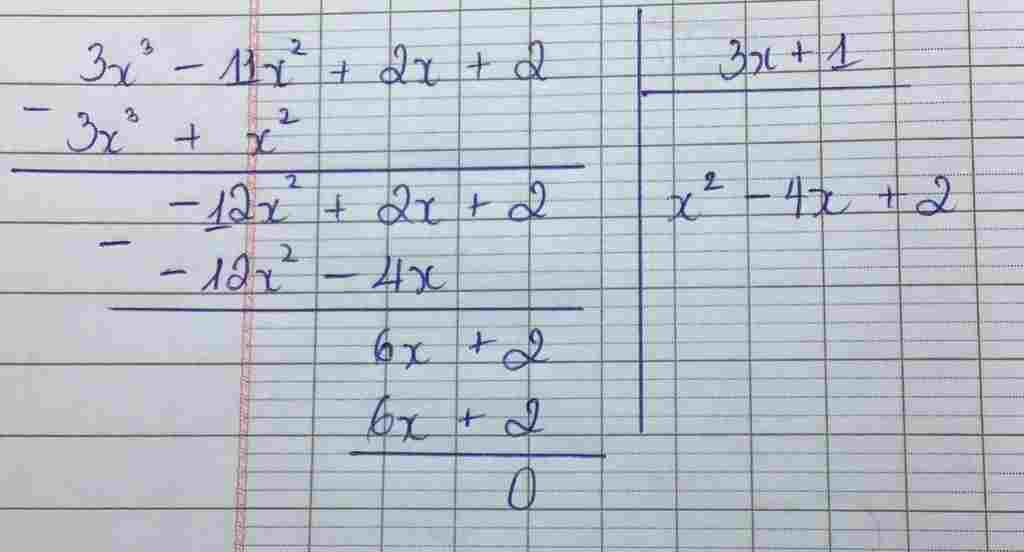 3x³ - 11x² + 2x + 2
3x + 1
-
3x³ + x²
-12x² + 2x + 2
x² - 4x + 2
-
-12x² - 4x
6x + 2
6x + 2
0